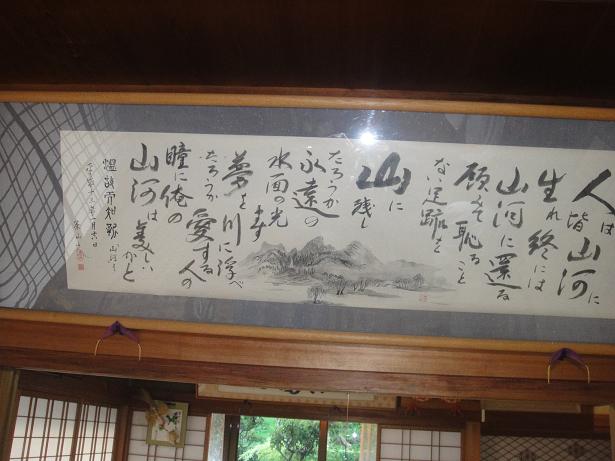 人は皆山河に
生れ終には
山河に還る
顧みて恥ること
ない足跡を
山に
残し
たろうか
永遠の
水面の光
ます
夢を川に浮べ
たろうか
愛する人の
瞳に俺の
山河は美しい
かと